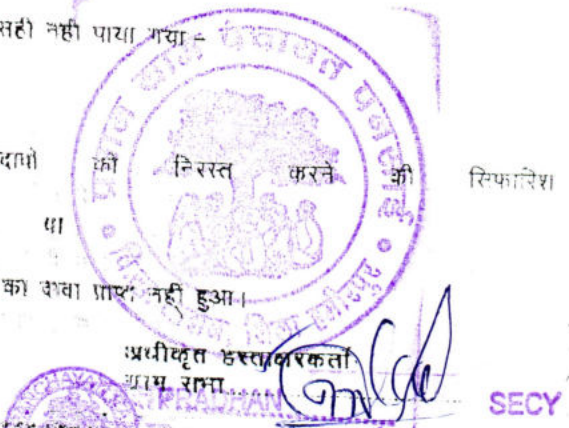 सही नहीं पाया गया -
दावों को निरस्त करने की सिफारिश
या
का दावा प्राप्त नहीं हुआ।
प्रधान ग्राम पंचायत
अधीकृत हस्ताक्षरकर्ता
ग्राम सभा
PRADHAN
SECY